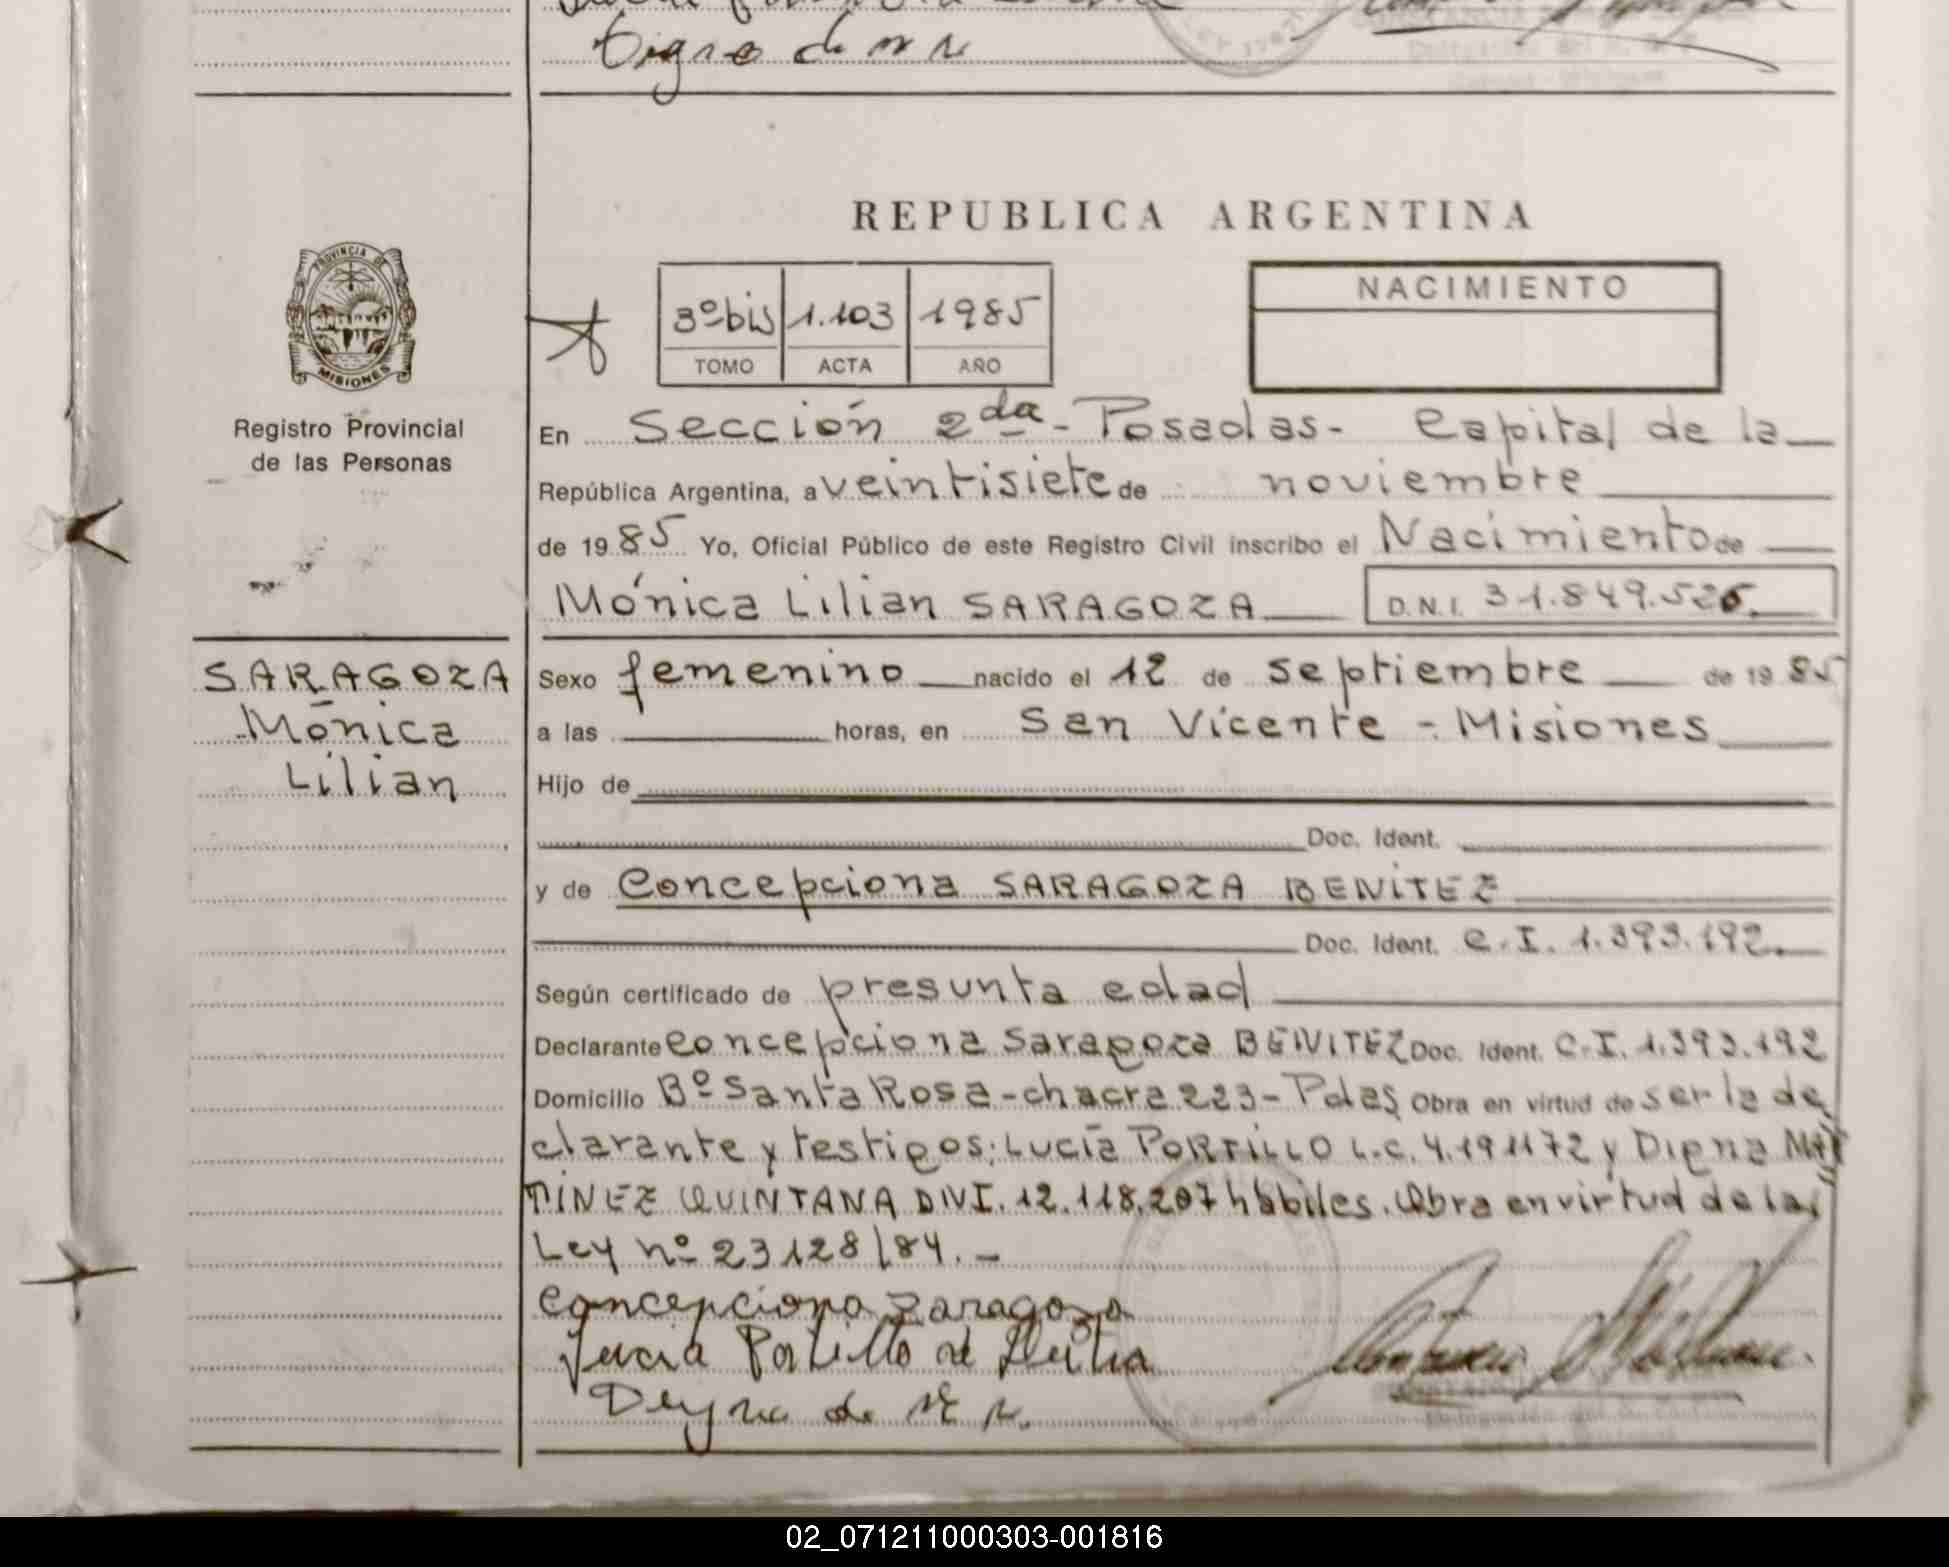 Digna de M R
REPUBLICA ARGENTINA
PROVINCIA DE
MISIONES
Registro Provincial
de las Personas
3º bis 1.103 1985
TOMO ACTA AÑO
NACIMIENTO
En Sección 2da - Posadas - Capital de la
República Argentina, a veintisiete de noviembre
de 1985 Yo, Oficial Público de este Registro Civil inscribo el Nacimiento de
Mónica Lilian SARAGOZA D.N.I. 31.849.526.
SARAGOZA
Mónica
Lilian
Sexo femenino nacido el 12 de septiembre de 1985
a las horas, en San Vicente - Misiones
Hijo de
Doc. Ident.
y de Concepciona SARAGOZA BENITEZ
Doc. Ident. C.I. 1.393.192.
Según certificado de presunta edad
Declarante Concepciona Saragoza BENITEZ Doc. Ident. C.I. 1.393.192
Domicilio Bº Santa Rosa - chacra 223 - Pdas Obra en virtud de ser la de
clarante y testigos: Lucía PORTILLO L.C. 4.191172 y Digna MAR
TINEZ QUINTANA DNI. 12.118.207 hábiles. Obra en virtud de la
Ley nº 23128/84. -
Concepciona Zaragoza
Lucia Portillo de
Digna de M R.
02_071211000303-001816